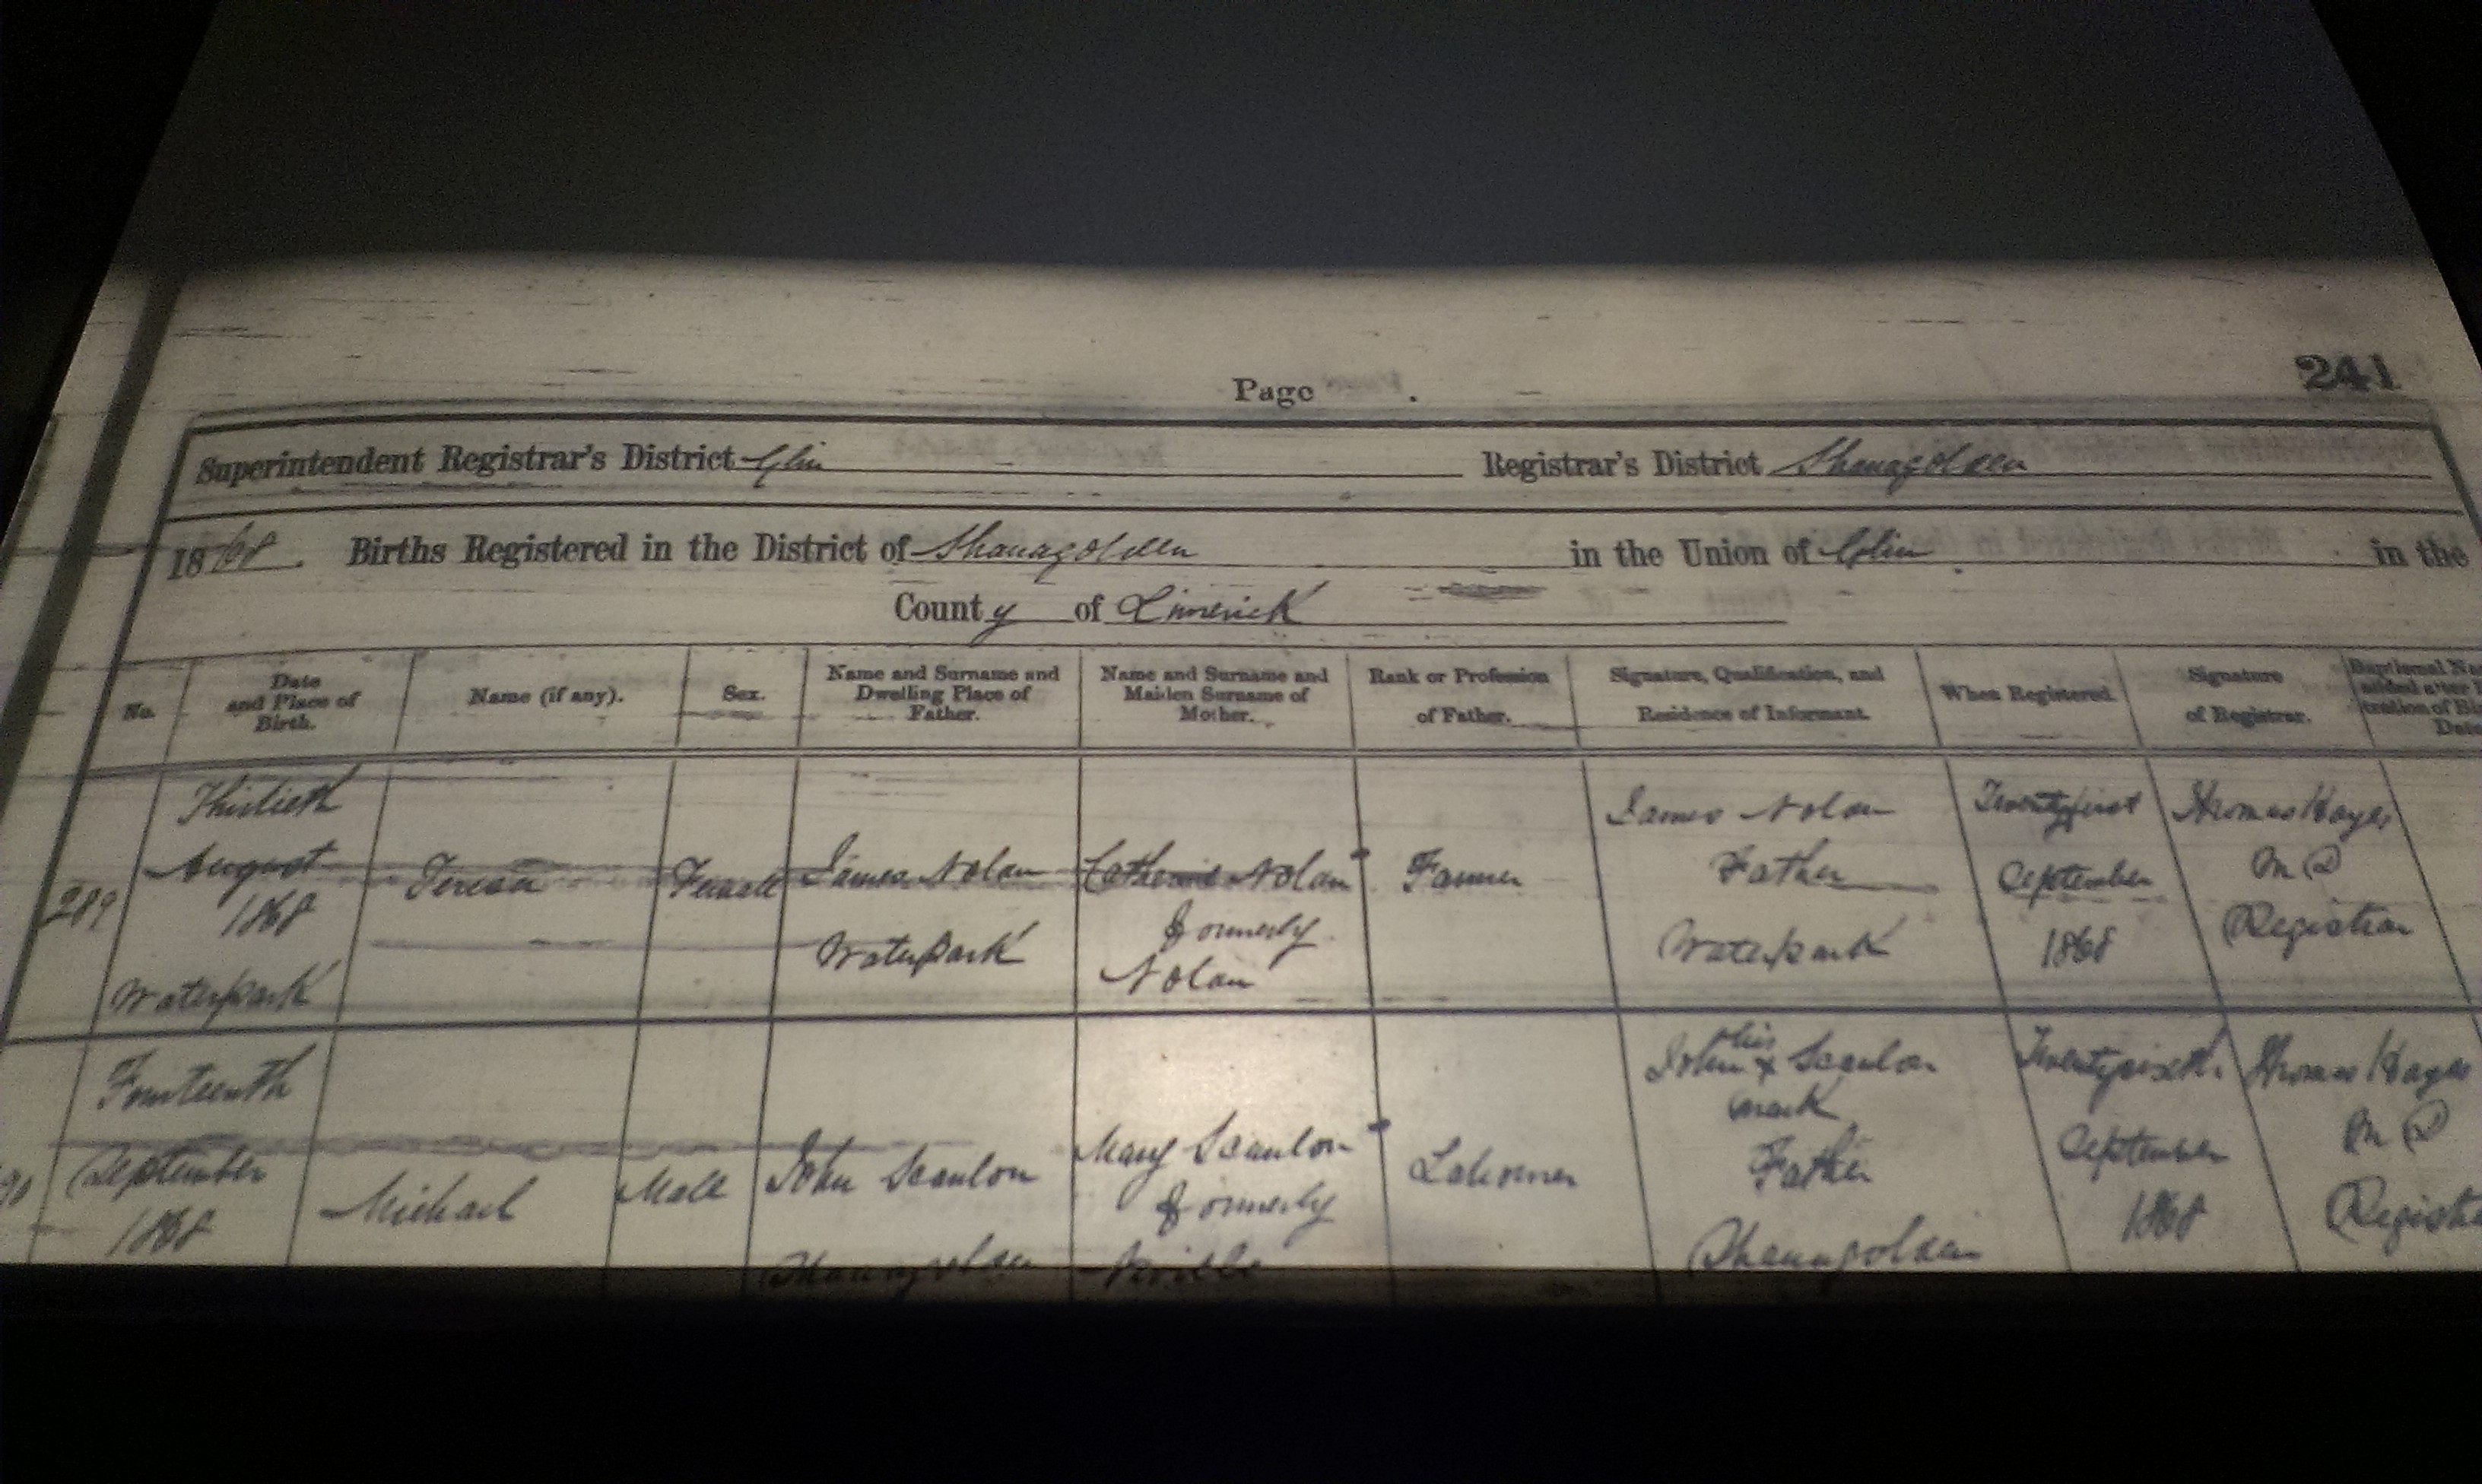 Page .
241
Superintendent Registrar's District Glin Registrar's District Shanagolden
1868. Births Registered in the District of Shanagolden in the Union of Glin in the
County of Limerick
No.
Date
and Place of
Birth.
Name (if any).
Sex.
Name and Surname and
Dwelling Place of
Father.
Name and Surname and
Maiden Surname of
Mother.
Rank or Profession
of Father.
Signature, Qualification, and
Residence of Informant.
When Registered.
Signature
of Registrar.
Baptismal
added after
Date
289
Thirtieth
August
1868
Waterpark
Teresa
Female
James Nolan
Waterpark
Catherine Nolan
formerly
Nolan
Farmer
James Nolan
Father
Waterpark
Twentyfirst
September
1868
Thomas Hayes
M D
Registrar
90
Fourteenth
September
1868
Michael
Male
John Scanlon
Shanagolden
Mary Scanlon
formerly
Labourer
his
John x Scanlon
mark
Father
Shanagolden
Twentysixth
September
1868
Thomas Hayes
M D